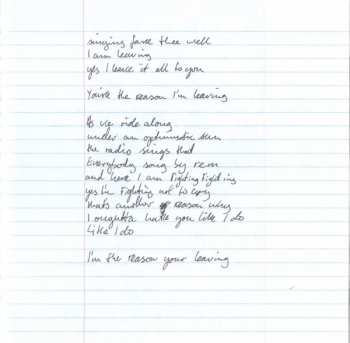 singing fare thee well
I am leaving
yes I leave it all to you
You're the reason I'm leaving
As we ride along
under an optimistic sun
the radio sings that
Everybody song by rem
and here I am fighting fighting
yes I'm fighting not to cry
thats another reason why
I oughtta hate you like I do
Like I do
I'm the reason your leaving